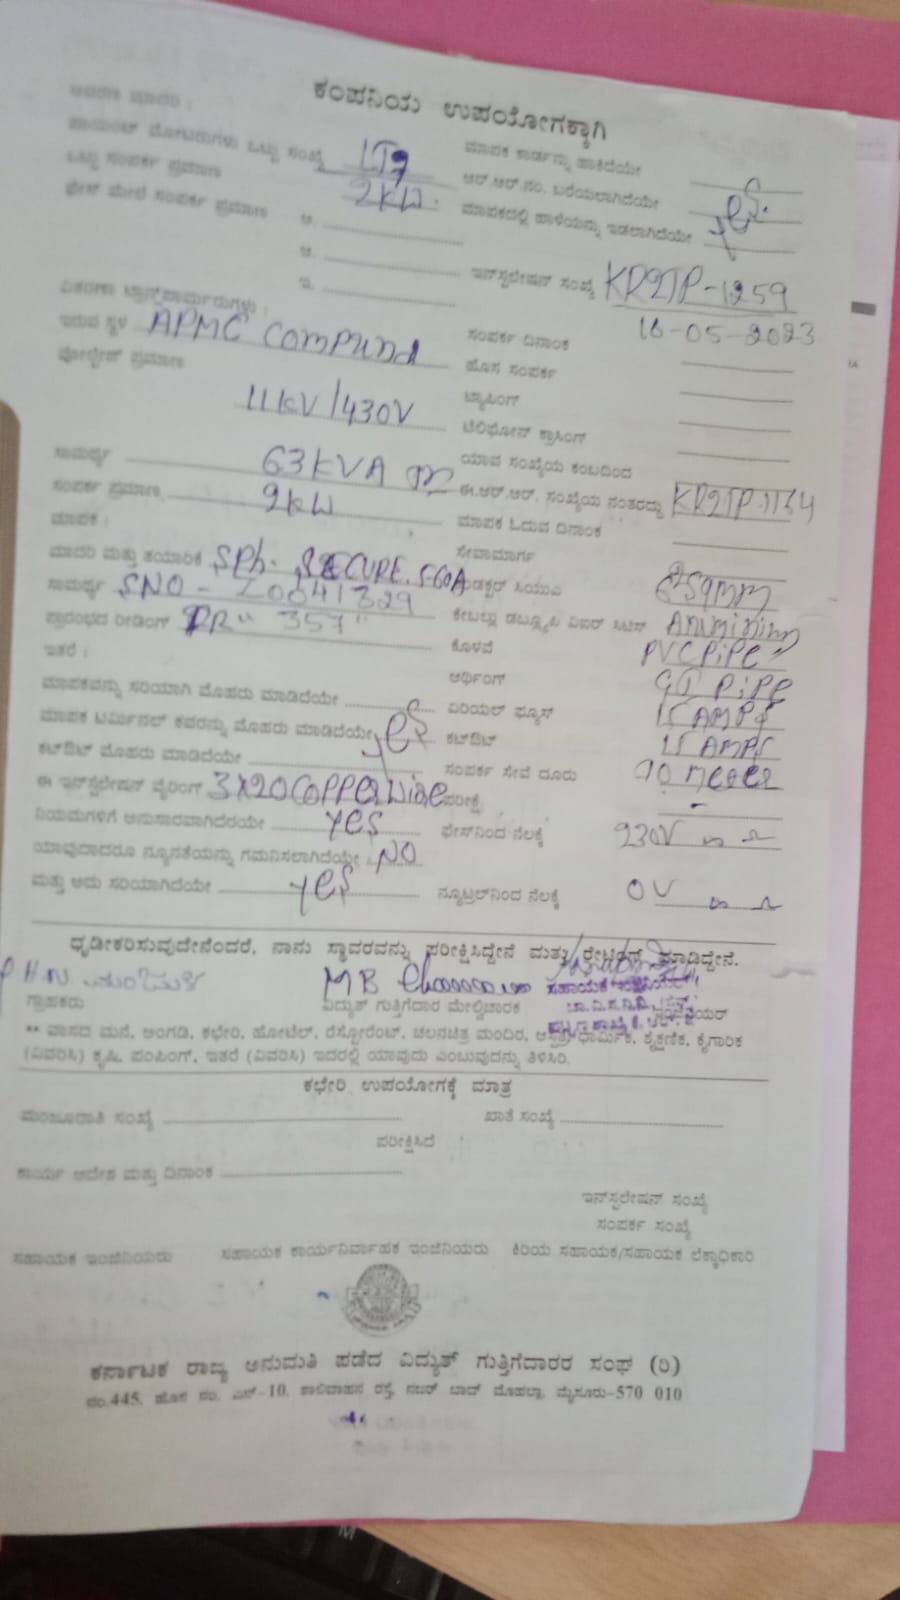 ಕಂಪನಿಯ ಉಪಯೋಗಕ್ಕಾಗಿ
ಮಾಪಕ ಕಾರ್ಡನ್ನು ಹಾಕಿದೆಯೇ
ಒಟ್ಟು ಸಂಖ್ಯೆ LT7
ಆರ್.ಆರ್.ನಂ. ಬರೆಯಲಾಗಿದೆಯೇ
ಒಟ್ಟು ಸಂಪರ್ಕ ಪ್ರಮಾಣ 2KW.
ಮಾಪಕದಲ್ಲಿ ಹಾಳೆಯನ್ನು ಇಡಲಾಗಿದೆಯೇ yes.
ಫೇಸ್ ಮೇಲೆ ಸಂಪರ್ಕ ಪ್ರಮಾಣ ಅ.
ಆ.
ಇನ್‌ಸ್ಟಲೇಷನ್ ಸಂಖ್ಯೆ KR2TP-1259
ಇ.
16-05-2023
ಇರುವ ಸ್ಥಳ APMC Compund
ಸಂಪರ್ಕ ದಿನಾಂಕ
ವೋಲ್ಟೇಜ್ ಪ್ರಮಾಣ
ಹೊಸ ಸಂಪರ್ಕ
11KV/430V
ಟ್ಯಾಪಿಂಗ್
ಟೆಲಿಫೋನ್ ಕ್ರಾಸಿಂಗ್
ಸಾಮರ್ಥ್ಯ 63KVA
ಯಾವ ಸಂಖ್ಯೆಯ ಕಂಬದಿಂದ
ಸಂಪರ್ಕ ಪ್ರಮಾಣ 2KW
ಈ.ಆರ್.ಆರ್. ಸಂಖ್ಯೆಯ ನಂತರದ್ದು KR2TP.1134
ಮಾಪಕ :
ಮಾಪಕ ಓದುವ ದಿನಾಂಕ
ಸೇವಾಮಾರ್ಗ
ಮಾದರಿ ಮತ್ತು ತಯಾರಿಕೆ SPh. SECURE. 5-60A
ಸಾಮರ್ಥ್ಯ SNO - Z0041329
ಪ್ರಾರಂಭದ ರೀಡಿಂಗ್ 357"
ಇತರೆ :
ಕೊಳವೆ PVC PiPe
ಅರ್ಥಿಂಗ್ GI PiPe
ಮಾಪಕವನ್ನು ಸರಿಯಾಗಿ ಮೊಹರು ಮಾಡಿದೆಯೇ
ಏರಿಯಲ್ ಫ್ಯೂಸ್ 15 AMPS
ಮಾಪಕ ಟರ್ಮಿನಲ್ ಕವರನ್ನು ಮೊಹರು ಮಾಡಿದೆಯೇ yes
ಕಟ್‌ಔಟ್ 15 AMPS
ಕಟ್‌ಔಟ್ ಮೊಹರು ಮಾಡಿದೆಯೇ
ಸಂಪರ್ಕ ಸೇವೆ ದೂರು 10 meter
ಈ ಇನ್‌ಸ್ಟಲೇಷನ್ ವೈರಿಂಗ್ 3X20 COPPER Wire
ಪರೀಕ್ಷೆ -
ನಿಯಮಗಳಿಗೆ ಅನುಸಾರವಾಗಿದೆಯೇ yes
ಫೇಸ್‌ನಿಂದ ನೆಲಕ್ಕೆ 230V
ಯಾವುದಾದರೂ ನ್ಯೂನತೆಯನ್ನು ಗಮನಿಸಲಾಗಿದೆಯೇ NO
ಮತ್ತು ಅದು ಸರಿಯಾಗಿದೆಯೇ yes
ನ್ಯೂಟ್ರಲ್‌ನಿಂದ ನೆಲಕ್ಕೆ 0V
ಧೃಡೀಕರಿಸುವುದೇನೆಂದರೆ, ನಾನು ಸ್ಥಾವರವನ್ನು ಪರೀಕ್ಷಿಸಿದ್ದೇನೆ ಮತ್ತು ಮಾಡಿದ್ದೇನೆ.
MB
ಗ್ರಾಹಕರು
ವಿದ್ಯುತ್ ಗುತ್ತಿಗೆದಾರ ಮೇಲ್ವಿಚಾರಕ
** ವಾಸದ ಮನೆ, ಅಂಗಡಿ, ಕಛೇರಿ, ಹೋಟೆಲ್, ರೆಸ್ಟೋರೆಂಟ್, ಚಲನಚಿತ್ರ ಮಂದಿರ, ಆಸ್ಪತ್ರೆ, ಧಾರ್ಮಿಕ, ಶೈಕ್ಷಣಿಕ, ಕೈಗಾರಿಕೆ
(ವಿವರಿಸಿ) ಕೃಷಿ, ಪಂಪಿಂಗ್, ಇತರೆ (ವಿವರಿಸಿ) ಇದರಲ್ಲಿ ಯಾವುದು ಎಂಬುವುದನ್ನು ತಿಳಿಸಿರಿ.
ಕಛೇರಿ ಉಪಯೋಗಕ್ಕೆ ಮಾತ್ರ
ಮಂಜೂರಾತಿ ಸಂಖ್ಯೆ
ಖಾತೆ ಸಂಖ್ಯೆ
ಪರೀಕ್ಷಿಸಿದೆ
ಕಾರ್ಯ ಆದೇಶ ಮತ್ತು ದಿನಾಂಕ
ಇನ್‌ಸ್ಟಲೇಷನ್ ಸಂಖ್ಯೆ
ಸಂಪರ್ಕ ಸಂಖ್ಯೆ
ಸಹಾಯಕ ಇಂಜಿನಿಯರು ಸಹಾಯಕ ಕಾರ್ಯನಿರ್ವಾಹಕ ಇಂಜಿನಿಯರು ಕಿರಿಯ ಸಹಾಯಕ/ಸಹಾಯಕ ಲೆಕ್ಕಾಧಿಕಾರಿ
ಕರ್ನಾಟಕ ರಾಜ್ಯ ಅನುಮತಿ ಪಡೆದ ವಿದ್ಯುತ್ ಗುತ್ತಿಗೆದಾರರ ಸಂಘ (ರಿ)
ನಂ.445, ಹೊಸ ನಂ. ಎನ್-10, ಶಾಲಿವಾಹನ ರಸ್ತೆ, ನಜರ್ ಬಾದ್ ಮೊಹಲ್ಲಾ, ಮೈಸೂರು-570 010